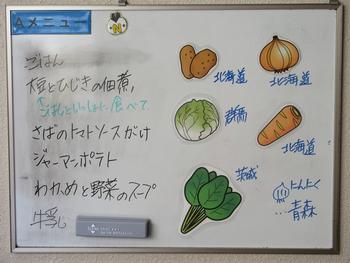 Aメニュー
N
ごはん
大豆とひじきの佃煮
↑ごはんといっしょに食べて
さばのトマトソースがけ
ジャーマンポテト
わかめと野菜のスープ
牛乳
北海道
北海道
群馬
北海道
茨城
にんにく
…青森